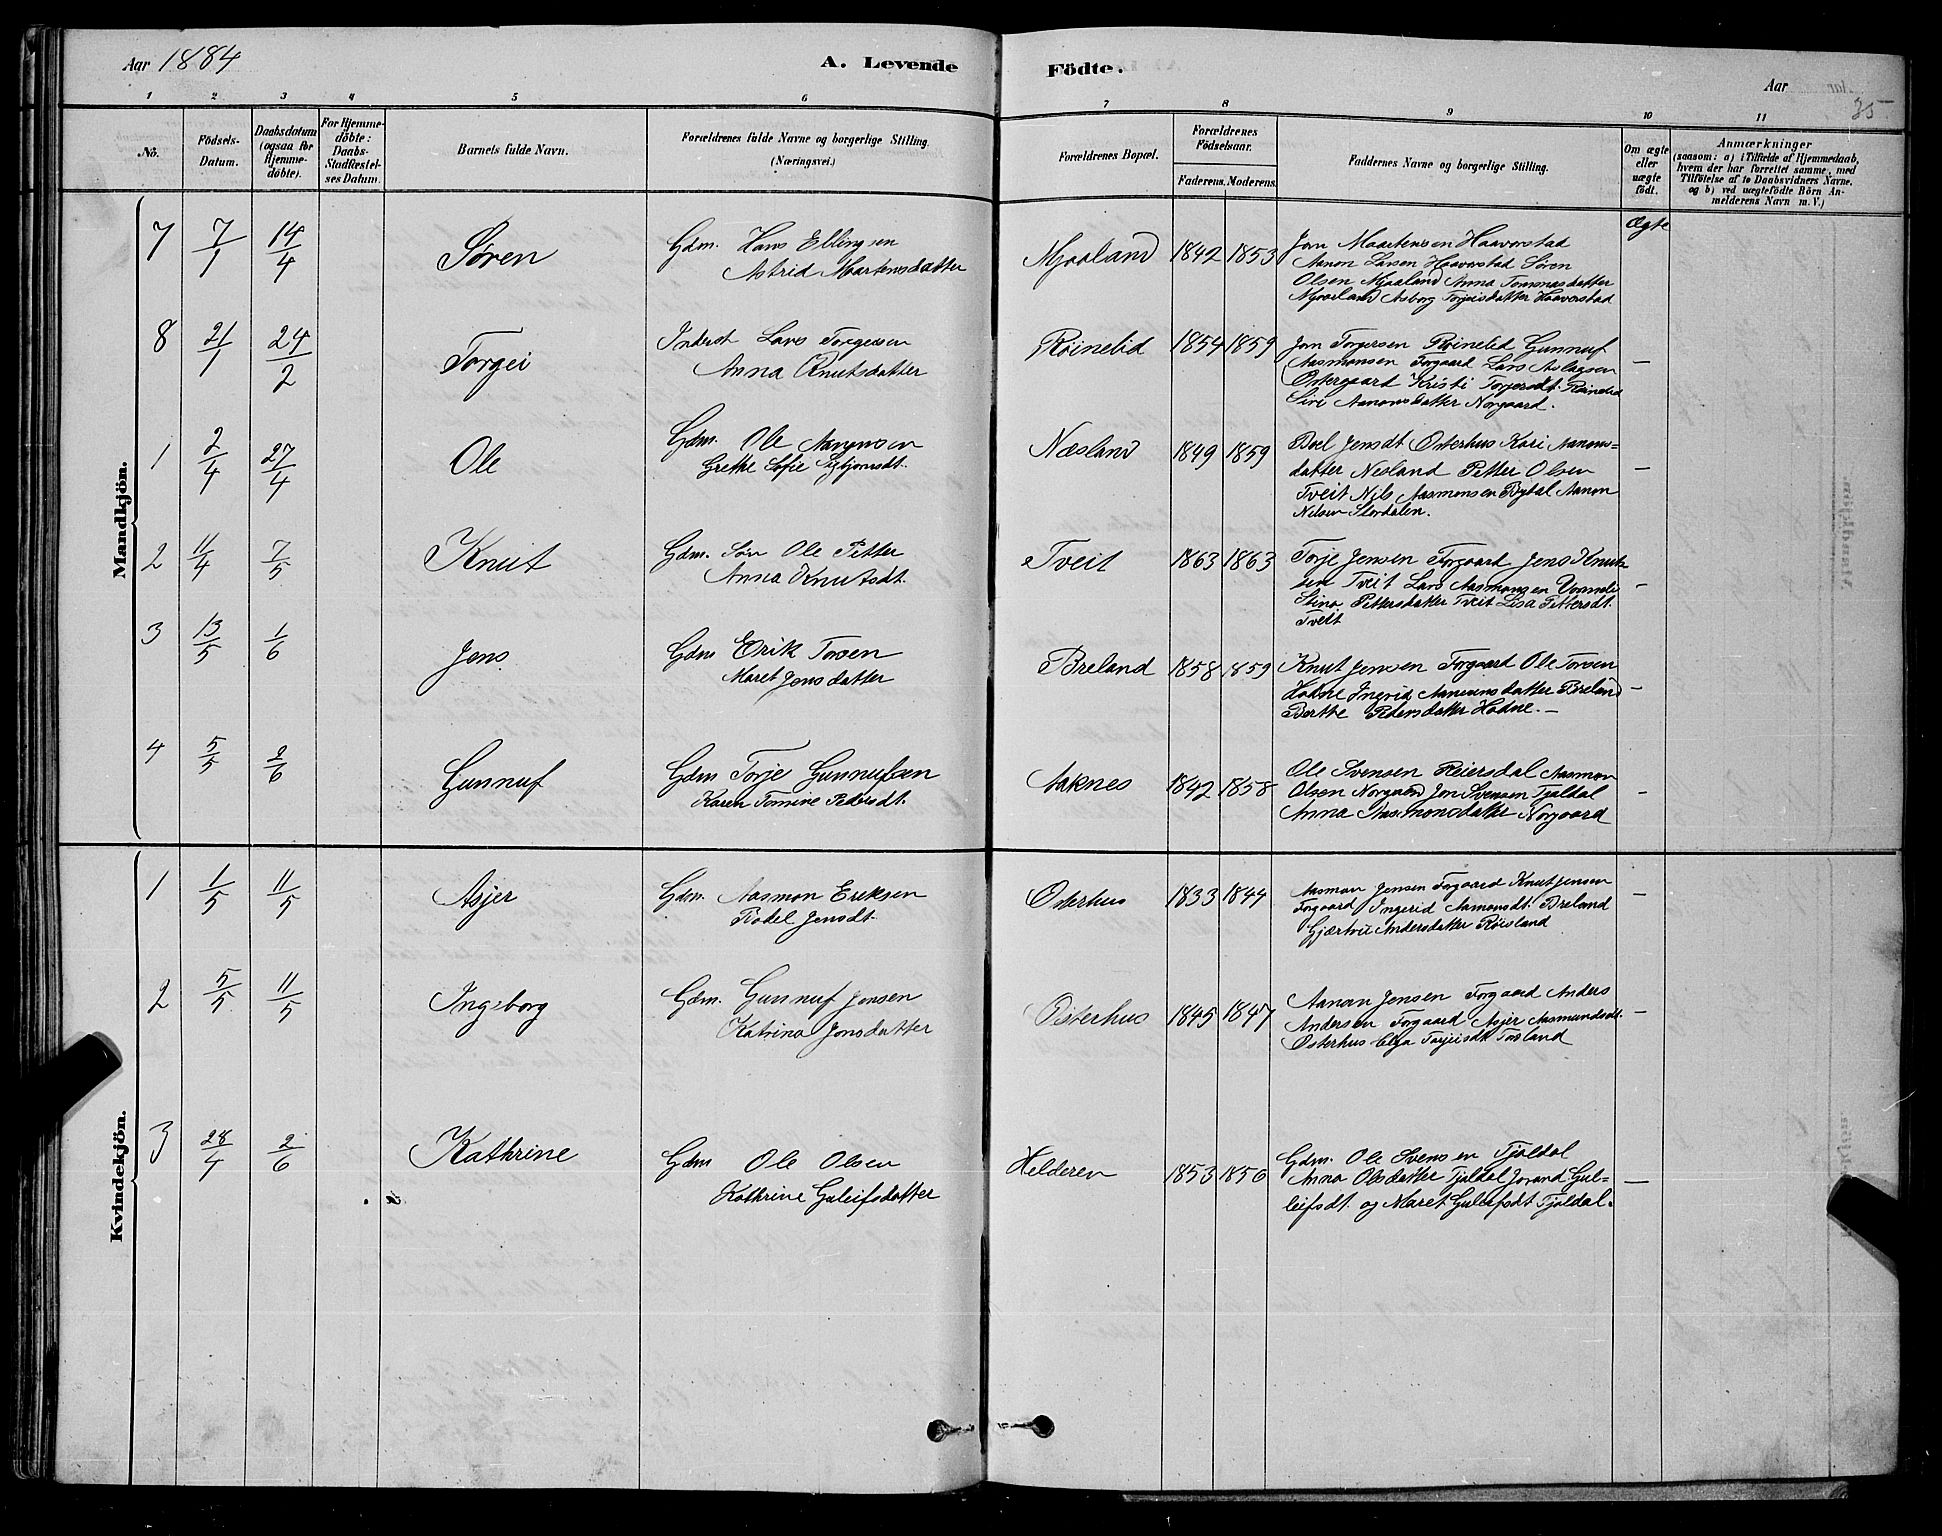 Aar 1884
A. Levende
Födte.
Aar
35
1 2 3 4 5 6 7 8 9 10 11
No.
Födsels-
Datum.
Daabsdatum
(ogsaa for
Hjemme-
döbte).
For Hjemme-
döbte:
Daabs-
Stadfæstel-
ses Datum.
Barnets fulde Navn.
Forældrenes fulde Navne og borgerlige Stilling.
(Næringsvei.)
Forældrenes Bopæl.
Forældrenes
Födselsaar.
Faderens. Moderens.
Faddernes Navne og borgerlige Stilling.
Om ægte
eller
uægte
födt.
Anmærkninger
(saasom: a) i Tilfælde af Hjemmedaab,
hvem der har forrettet samme, med
Tilföielse af to Daabsvidners Navne,
og b) ved uægtefödte Börn An-
melderens Navn m. V.)
Mandkjön.
7 7/1 14/4 Søren
Gdm. Hans Ellingsen
Astrid Martensdatter
Mjaaland 1842 1853
Jørn Maartensen Haaverstad
Aanon Larsen Haaverstad Søren
Olsen Mjaaland Anna Tommasdatter
Mjaaland Asborg Torjeisdatter Haaverstad
Ægte
8 21/1 24/2 Torgei
Inderst Lars Torgersen
Anna Knutsdatter
Röinelid 1854 1859
Jon Torgersen Röinelid Gunnuf
Aasmonsen Forgaard Lars Aslagsen
Ostergaard Kristi Torjersdt. Röinelid
Siri Aanonsdatter Norgaard.
–
1 2/4 27/4 Ole
Gdm. Ole Aanonsen
Grethe Sofie
Næsland 1849 1859
Boel Jensdt Osterhus Kari Aanons=
datter Nesland Petter Olsen
Tveit Nils Aasmonsen Bytal Aanon
Nilsen Stordalen.
–
2 11/4 7/5 Knut
Gdm. Søn Ole Petter
Anna Knutsdt.
Tveit 1863 1863
Torje Jensen Forgaard Jens Knut-
sen Tveit Lars Aasmonsen
Stina Pettersdatter Tveit Lisa Pettersdt.
Tveit
–
3 13/5 1/6 Jens
Gdm Erik Torsen
Maret Jensdatter
Breland 1858 1859
Knut Jensen Forgaard Ole Torsen
Hodne Ingerid Aanonsdatter Breland
Berthe Pedersdatter Hodne. –
–
4 5/5 2/6 Gunnuf
Gdm Torje Gunnufsen
Karen Tomine Pedersdt.
Aaknes 1842 1858
Ole Svensen Reiersdal Aasmon
Olsen Norgaard Jon Svensen Tjaldal
Anna Aasmonsdatter Norgaard
–
Kvindekjön.
1 1/5 11/5 Asjer
Gdm. Aasmon Eriksen
Jensdt.
Osterhus 1833 1844
Aasmon Jensen Forgaard Knut Jensen
Forgaard Ingerid Aamonsdt. Breland
Gjærtru Andersdatter Röisland
–
2 5/5 11/5 Ingeborg
Gdm. Gunnuf Jensen
Katrina Jonsdatter
Osterhus 1845 1847
Aanon Jensen Forgaard Anders
Andersen Forgaard Asjer Aasmundsdt.
Osterhus Elga Torjeisdt Tosland
–
3 28/4 2/6 Kathrine
Gdm Ole Olsen
Kathrine Guleifsdatter
Helderen 1853 1856
Gdm. Ole Svensen Tjaldal
Anna Olsdatter Tjaldal Jorand Gul=
leifsdt. og Maret Guleifsdt Tjaldal.
–